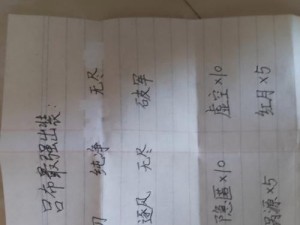 吕布最强出装:
纯净 无尽
逐风 无尽 破军
隐匿×10 虚空×10
祸源×5 红月×5